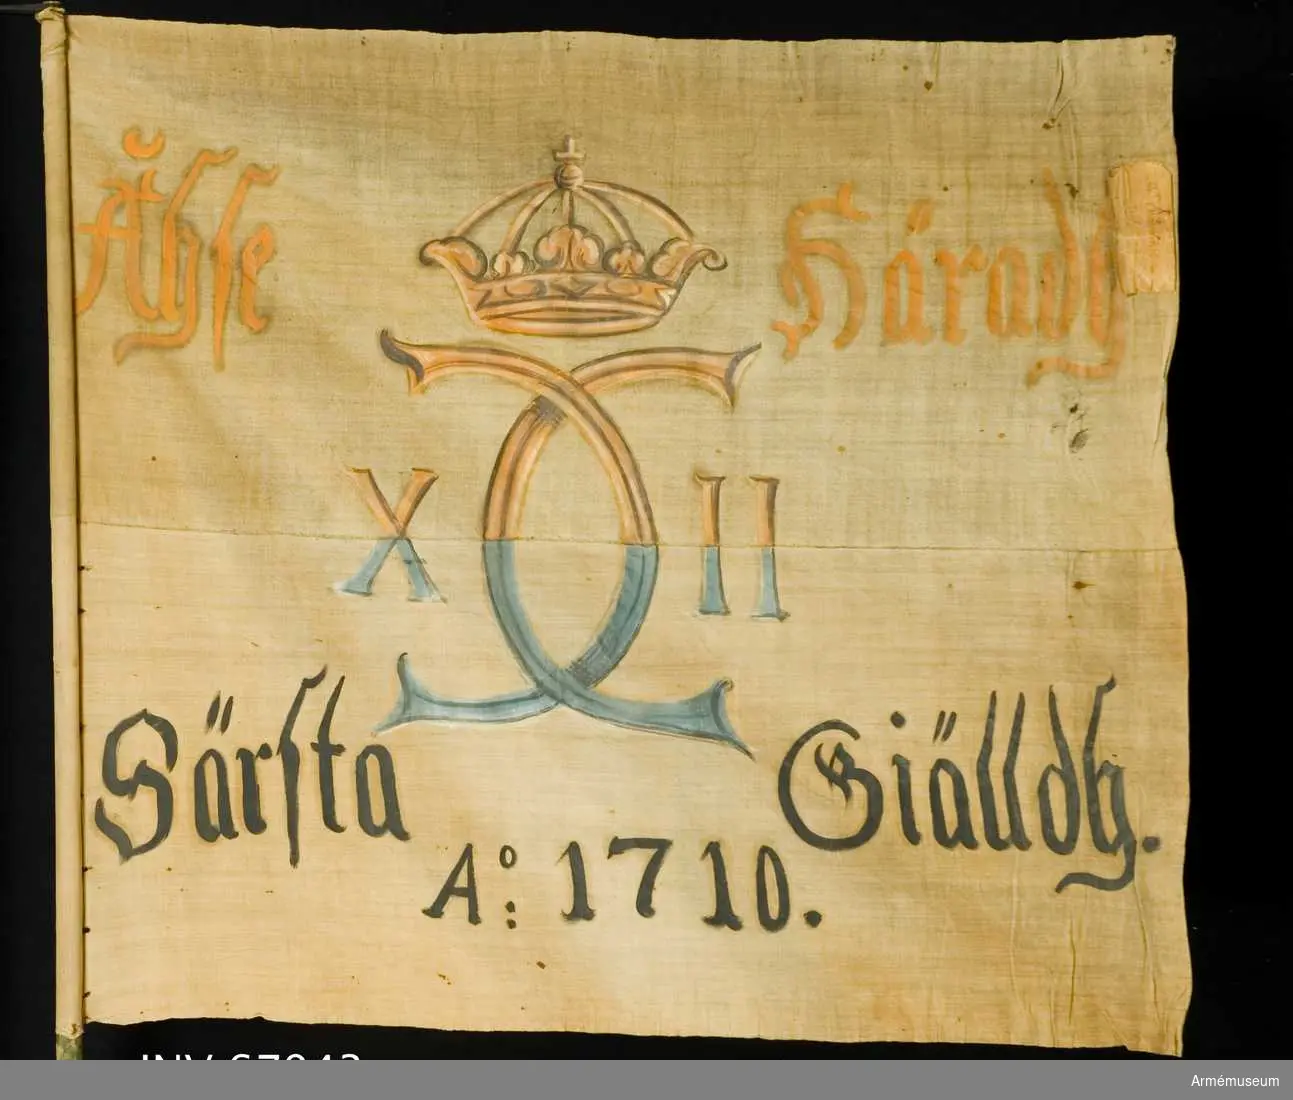 Åhse Häradh
X II
Särsta Giälldh.
Ao: 1710.
Armémuseum